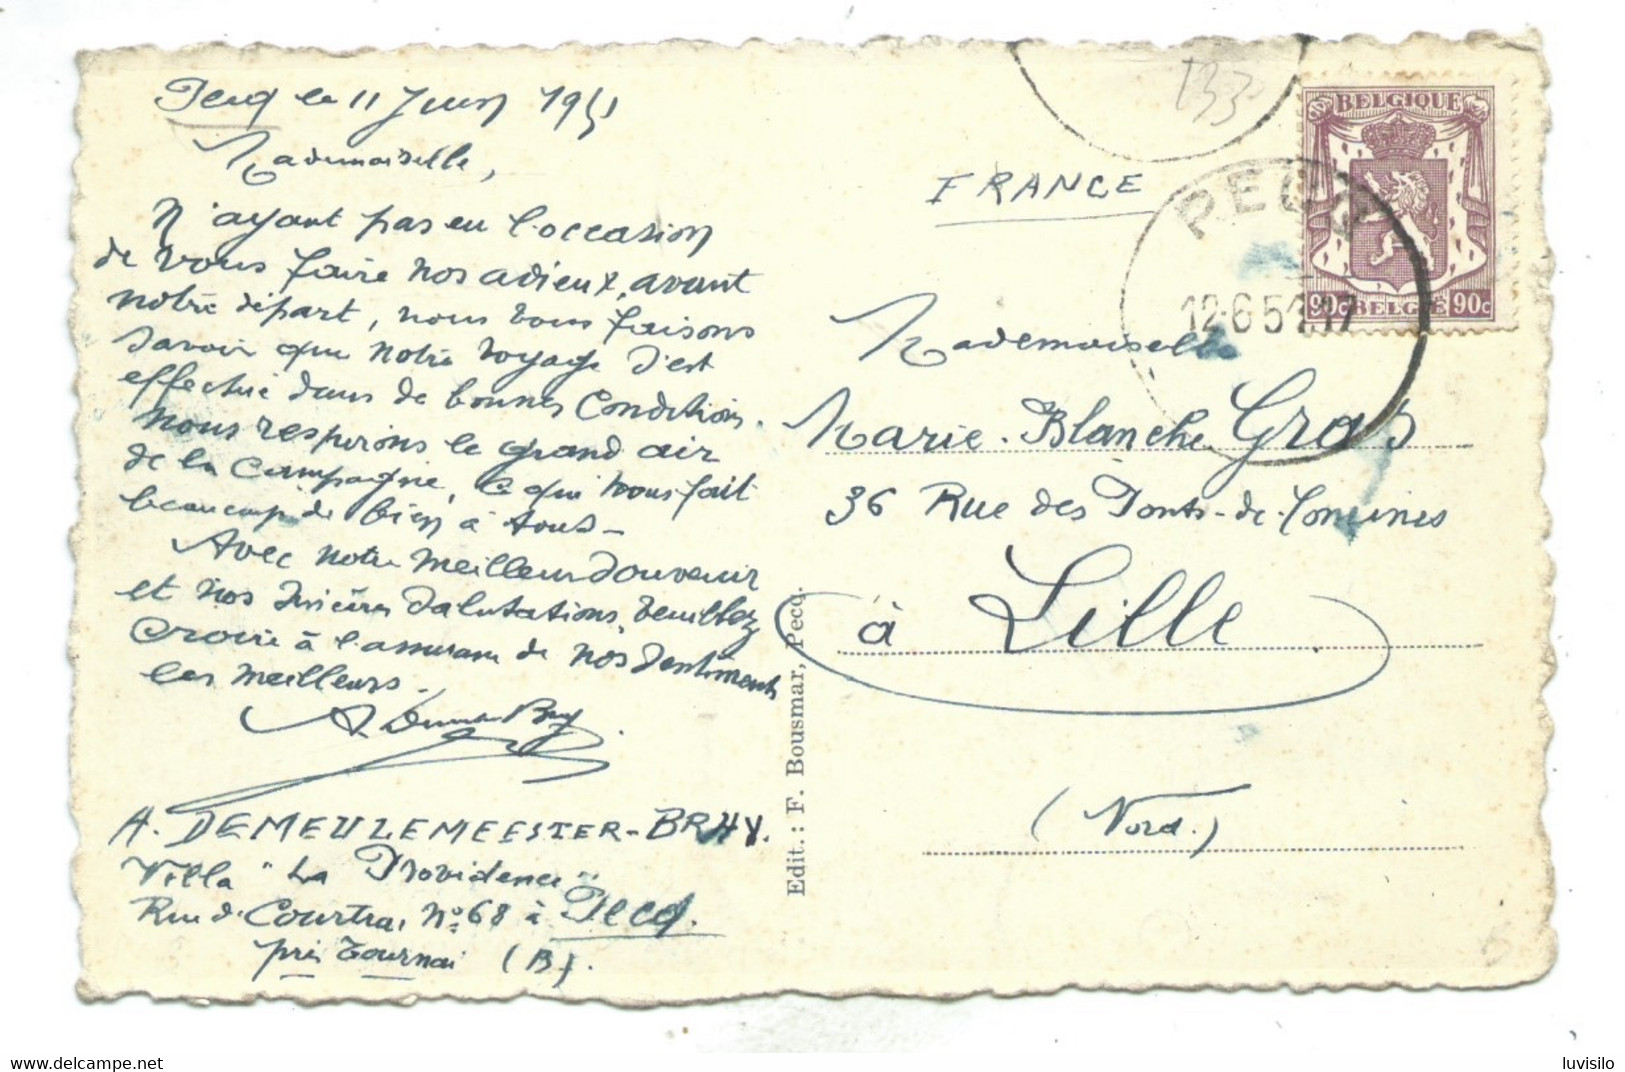 Pecq le 11 Juin 1951
Mademoiselle,
N'ayant pas eu l'occasion
de vous faire nos adieux, avant
notre départ, nous vous faisons
savoir que notre voyage s'est
effectué dans de bonnes conditions.
Nous respirons le grand air
de la Campagne, ce qui nous fait
beaucoup de bien à tous –
Avec notre meilleur souvenir
et nos sincères salutations, veuillez
croire à l'assurance de nos sentiments
les meilleurs.
A. DEMEULEMEESTER-BRAY.
Villa "La Providence"
Rue de Courtrai N° 68 à Pecq.
près Tournai (B).
Edit. : F. Bousmar, Pecq.
133
FRANCE
BELGIQUE
90c BELGIË 90c
PECQ
12-6 51 17
Mademoiselle
Marie-Blanche Gras
36 Rue des Ponts-de-Comines
à Lille
(Nord.)
delcampe.net
luvisilo